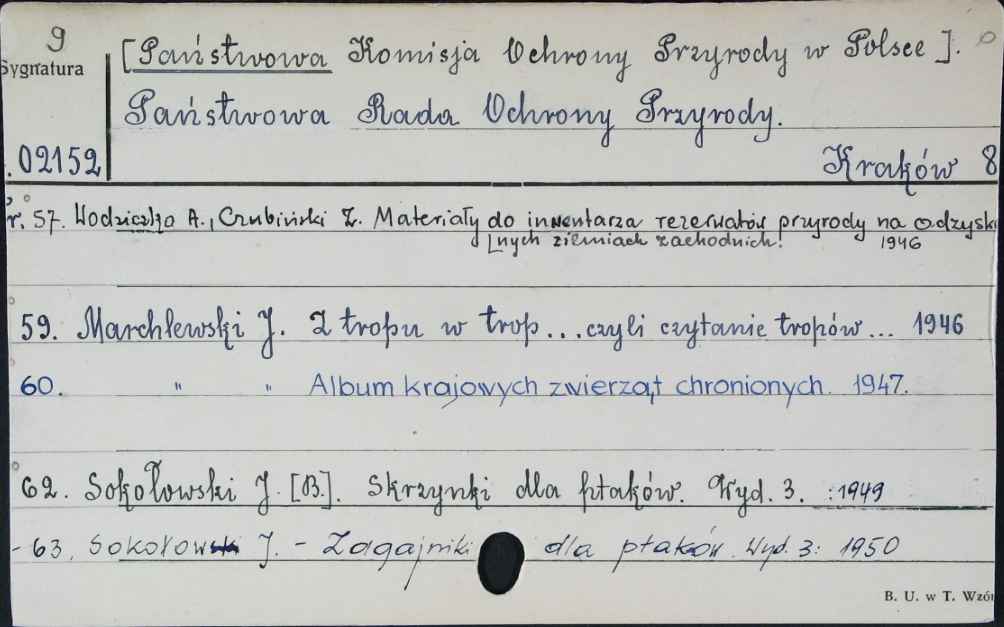 9
Sygnatura
[Państwowa Komisja Ochrony Przyrody w Polsce].
Państwowa Rada Ochrony Przyrody.
02152
Kraków 8
r. 57. Wodziczko A., Czubiński Z. Materiały do inwentarza rezerwatów przyrody na odzysk
[nych ziemiach zachodnich. 1946
59. Marchlewski J. Z tropu w trop... czyli czytanie tropów... 1946
60. " " Album krajowych zwierząt chronionych. 1947.
62. Sokołowski J. [B.]. Skrzynki dla ptaków. Wyd. 3. :1949
- 63. Sokołowski J. - Zagajniki dla ptaków. Wyd. 3: 1950
B. U. w T. Wzór